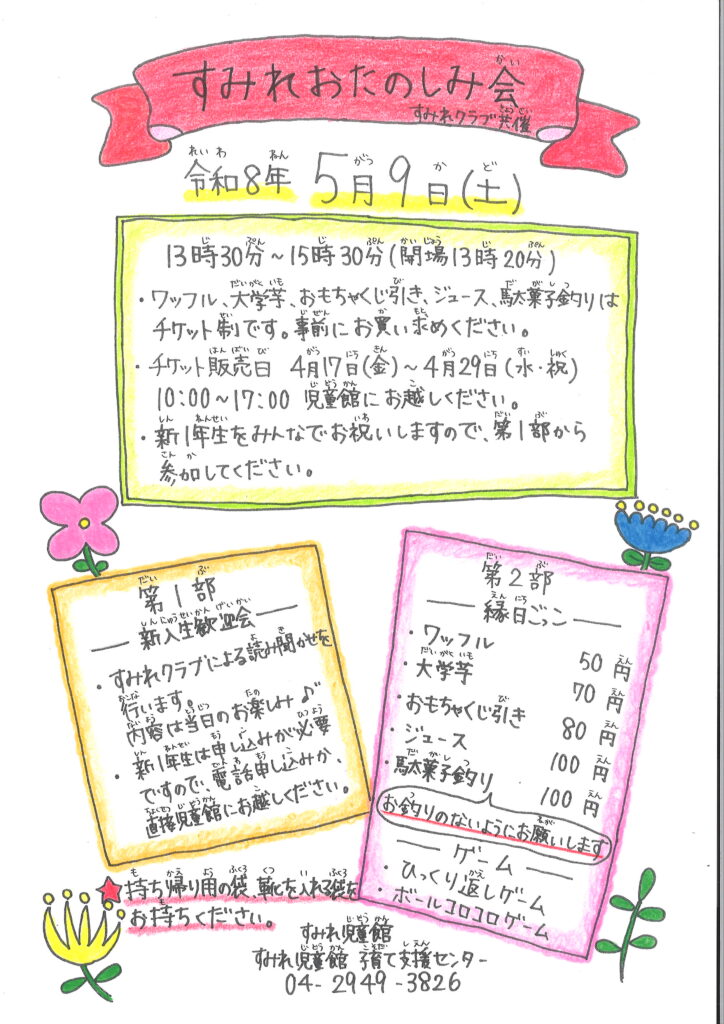 すみれおたのしみ会
すみれクラブ共催
令和8年 5月9日(土)
13時30分～15時30分(開場13時20分)
・ワッフル、大学芋、おもちゃくじ引き、ジュース、駄菓子釣りは
チケット制です。事前にお買い求めください。
・チケット販売日 4月17日(金)～4月29日(水・祝)
10:00～17:00 児童館にお越しください。
・新1年生をみんなでお祝いしますので、第1部から
参加してください。
第1部
新入生歓迎会
・すみれクラブによる読み聞かせを
行います。
内容は当日のお楽しみ♪
・新1年生は申し込みが必要
ですので、電話申し込みか、
直接児童館にお越しください。
第2部
縁日ごっこ
・ワッフル 50円
・大学芋 70円
・おもちゃくじ引き 80円
・ジュース 100円
・駄菓子釣り 100円
お釣りのないようにお願いします
ゲーム
・ひっくり返しゲーム
・ボールコロコロゲーム
★持ち帰り用の袋、靴を入れる袋を
お持ちください。
すみれ児童館
すみれ児童館 子育て支援センター
04-2949-3826